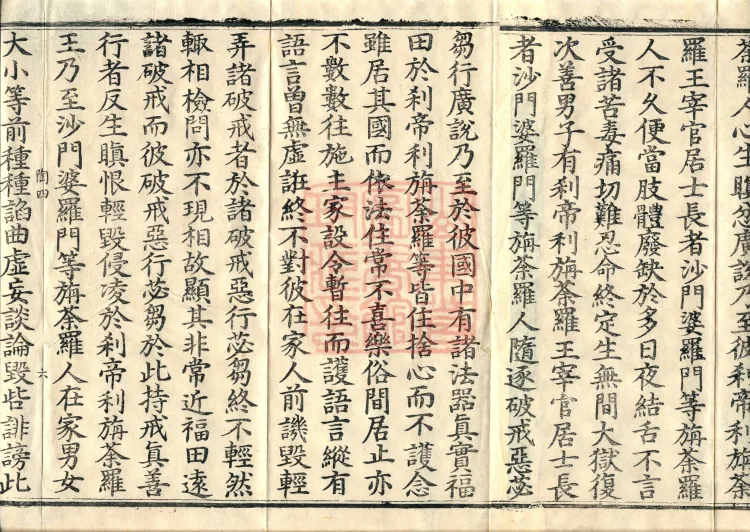 荼羅人心生瞋忿廣說乃至彼刹帝利旃荼
羅王宰官居士長者沙門婆羅門等旃荼羅
人不久便當肢體廢缺於多日夜結舌不言
受諸苦毒痛切難忍命終定生無間大獄復
次善男子有刹帝利旃荼羅王宰官居士長
者沙門婆羅門等旃荼羅人隨逐破戒惡苾
芻行廣說乃至於彼國中有諸法器眞實福
田於刹帝利旃荼羅等皆住捨心而不護念
雖居其國而依法住常不喜樂俗間居止亦
不數數往施主家設令暫往而護語言縱有
語言曾無虛誑終不對彼在家人前譏毀輕
弄諸破戒者於諸破戒惡行苾芻終不輕然
輒相檢問亦不現相故顯其非常近福田遠
諸破戒而彼破戒惡行苾芻於此持戒眞善
行者反生瞋恨輕毀侵凌於刹帝利旃荼羅
王乃至沙門婆羅門等旃荼羅人在家男女
陶四 六
大小等前種種諂曲虛妄談論毀呰誹謗此